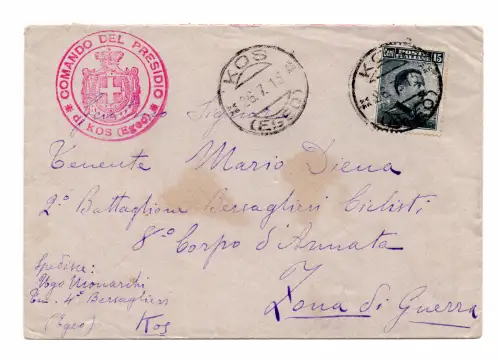 COMANDO DEL PRESIDIO
* di KOS (Egeo) *
KOS
26.7.15
(EGEO)
Cent. POSTE ITALIANE 15
KOS
(EGEO)
Signor
Tenente Mario Diena
2º Battaglione Bersaglieri Ciclisti
8º Corpo d'Armata
Zona di Guerra
Spedisce:
Ugo Monarchi
Ten. 4º Bersaglieri
(Egeo) Kos